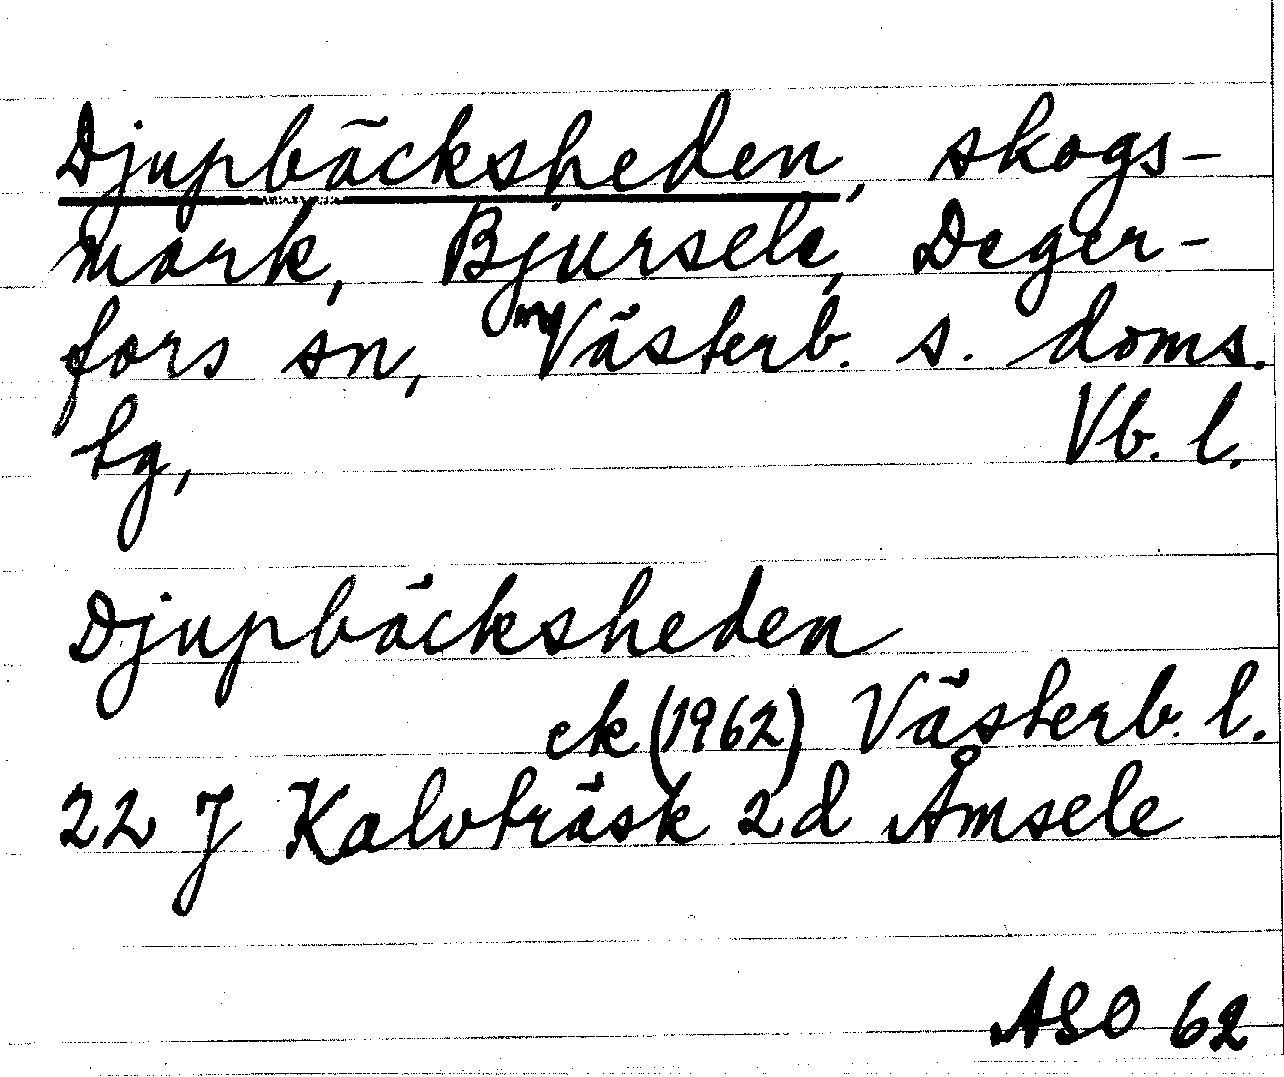 Djupbäcksheden, skogs-
mark, Bjursele, Deger-
fors sn, Västerb. s. doms.
tg, Vb. l.
Djupbäcksheden
ek (1962) Västerb. l.
22 J Kalvträsk 2d Åmsele
ASO 62